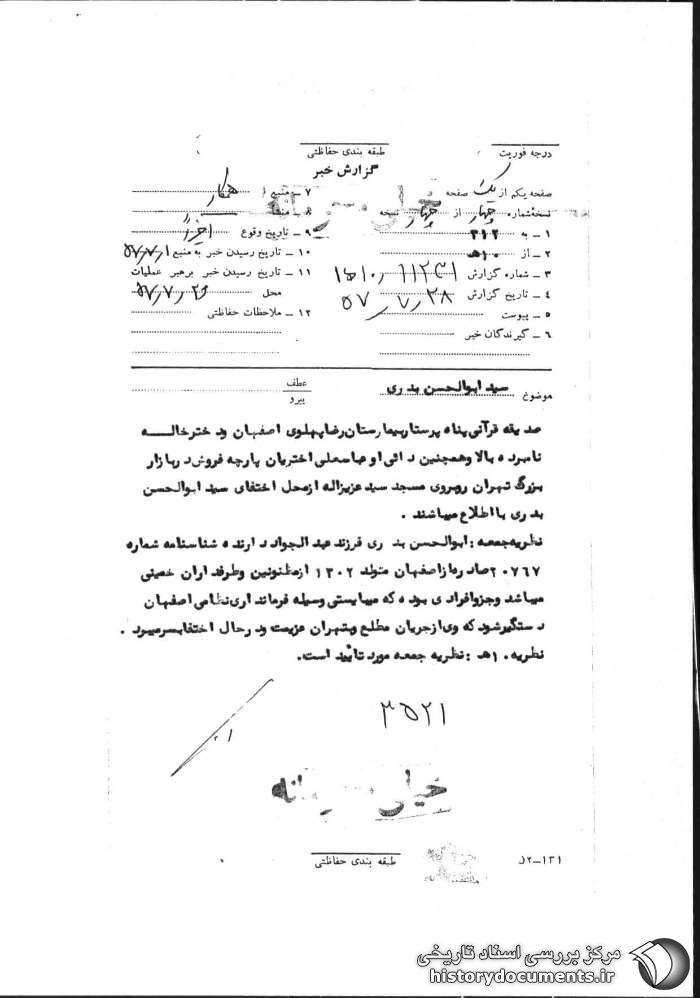 درجه فوریت
طبقه بندی حفاظتی
گزارش خبر
صفحه یکم از یک صفحه
نسخه شماره چهار از چهار نسخه
۱ ـ به ۳۱۲
۲ ـ از ۱۰هـ
۳ ـ شماره گزارش
۴ ـ تاریخ گزارش ۵۷٫۷٫۲۸
۵ ـ پیوست
۶ ـ گیرندگان خبر
۷ ـ منبع همکار
۸ ـ منشاء
۹ ـ تاریخ وقوع اخیراً
۱۰ ـ تاریخ رسیدن خبر به منبع
۱۱ ـ تاریخ رسیدن خبر برهبر عملیات
محل
۱۲ ـ ملاحظات حفاظتی
موضوع سید ابوالحسن بدری
عطف
پیرو
صدیقه قرآنی پناه پرستاربیمارستان رضاپهلوی اصفهان ودخترخالـــه
نامبرده بالا وهمچنین دائی او عباسعلی اختریان پارچه فروش در بازار
بزرگ تهران روبروی مسجد سید عزیزاله ازمحل اختفای سید ابوالحسن
بدری با اطلاع میباشند .
نظریه جمعه : ابوالحسن بدری فرزند عبدالجواد دارنده شناسنامه شماره
۲۰۷۶۷ صادره از اصفهان متولد ۱۳۰۲ ازمظنونین وطرفداران خمینی
میباشد وجزوافرادی بوده که میبایستی وسیله فرمانداری نظامی اصفهان
دستگیرشود که وی ازجریان مطلع وبتهران عزیمت ودرحال اختفا بسرمیبرد .
نظریه ۱۰هـ : نظریه جمعه مورد تأیید است.
۳۵۲۱
خیلی محرمانه
طبقه بندی حفاظتی
مرکز بررسی اسناد تاریخی
historydocuments.ir